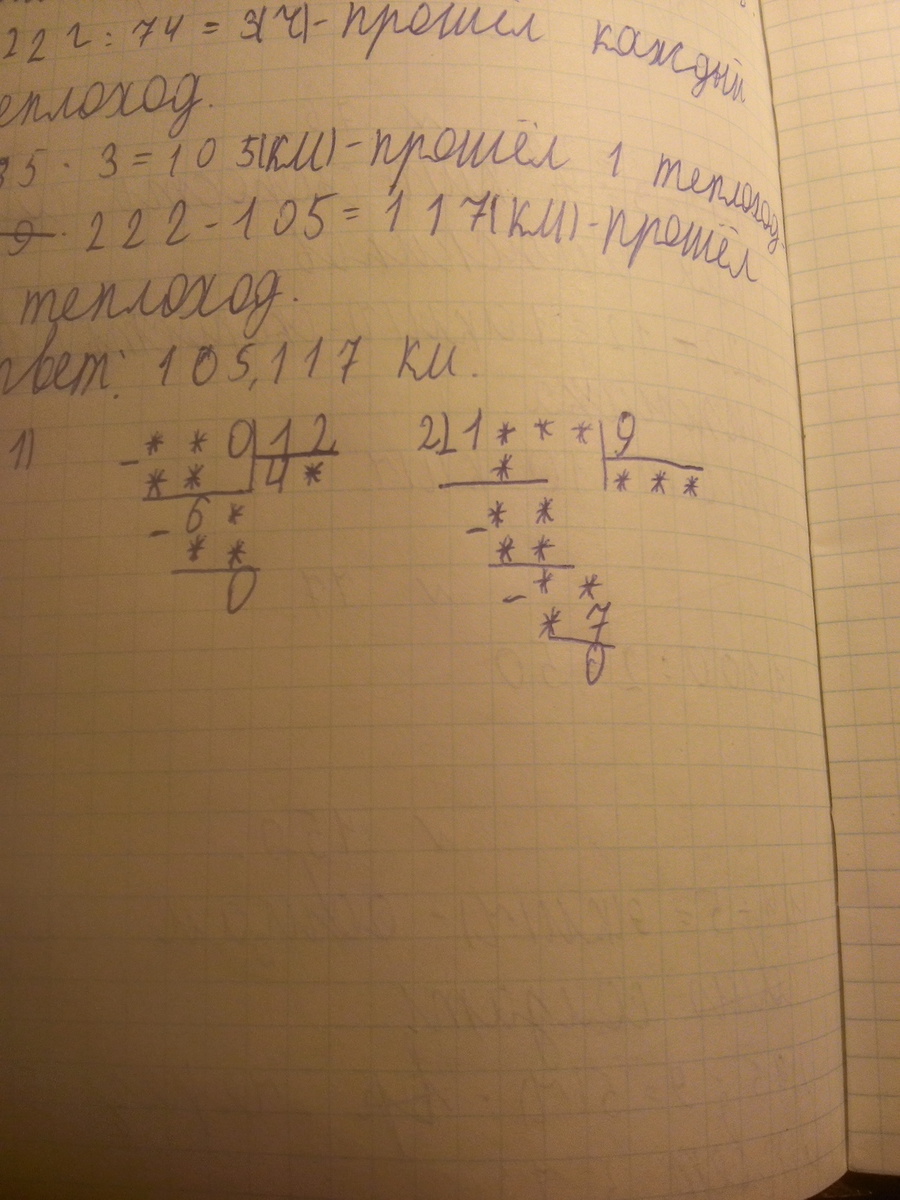 222 : 74 = 3(ч)-прошёл каждый
еплоход.
35 · 3 = 105(км)-прошёл 1 теплоход.
222-105=117(км)-прошёл
теплоход.
твет: 105,117 км.
1) - * * 0 | 12 2) 1 * * * | 9
* * 4 * * * * *
- 6 * - * *
* * * *
0 - * *
* 7
0